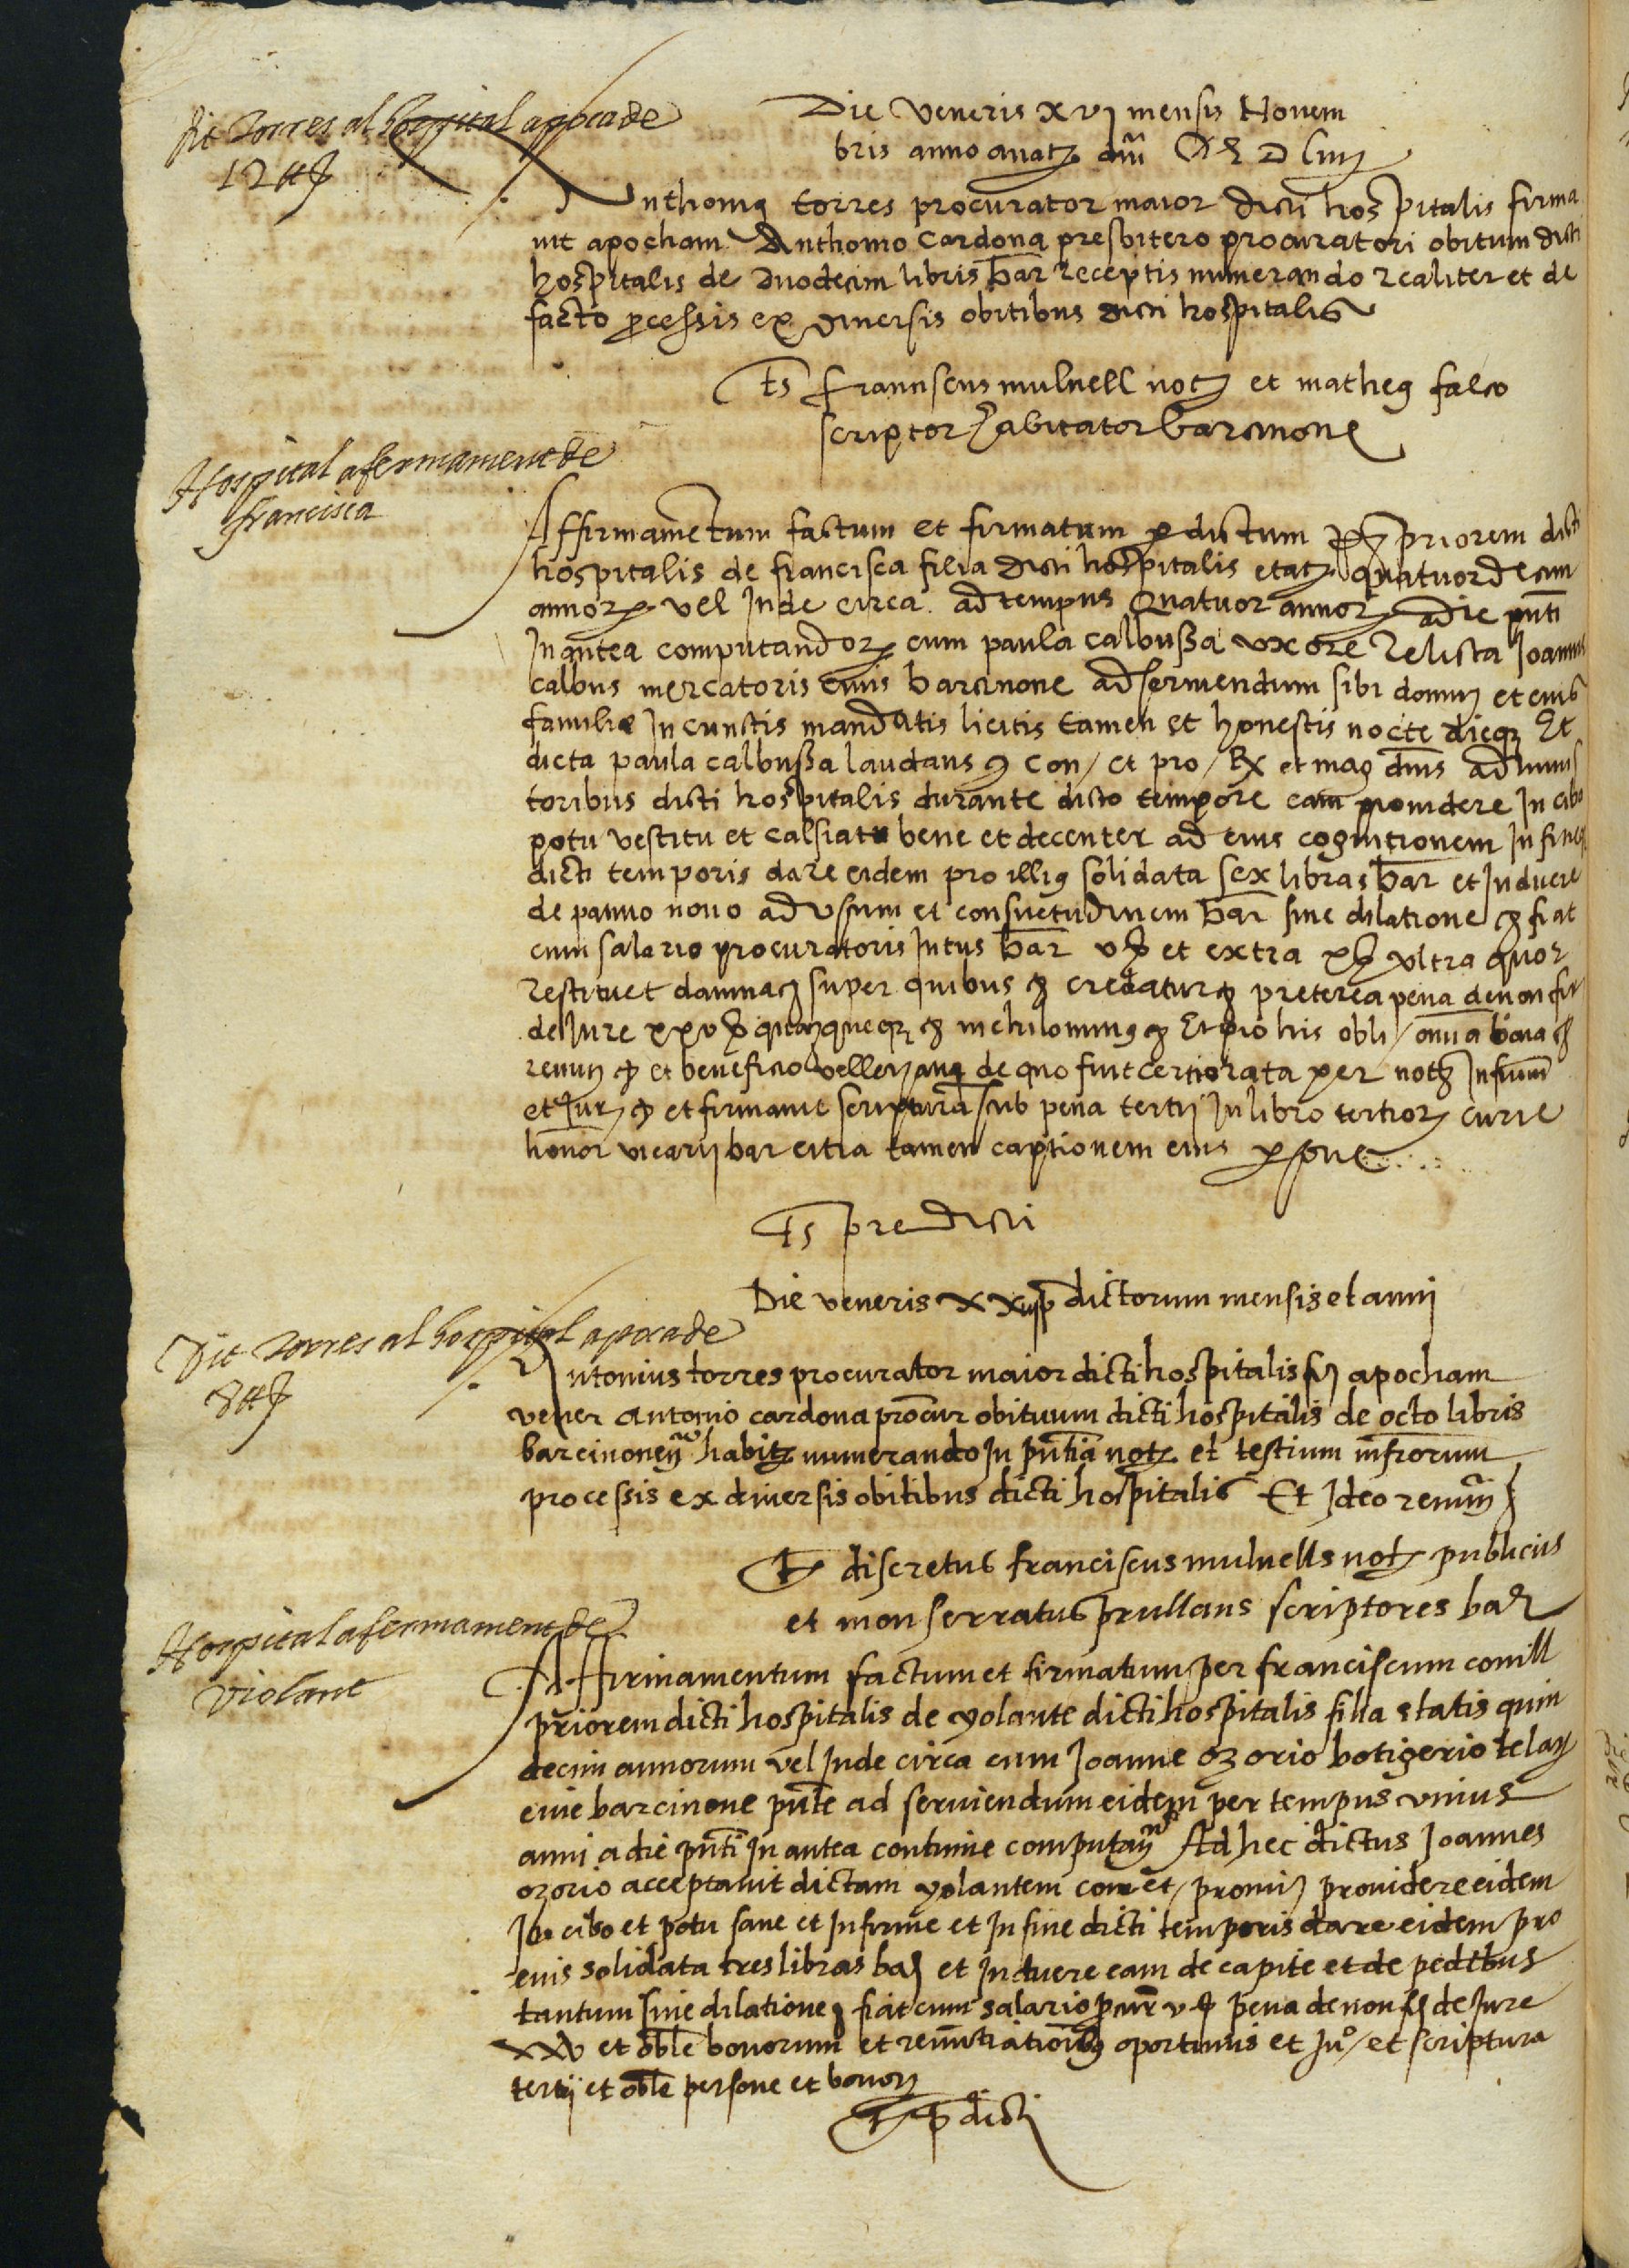 Dit Torres al hospital apoca de
12 ℔
Die Veneris xvj mensis Novem
bris anno a natz dni M D Liiij
Anthonius torres procurator maior dicti hospitalis firma
vit apocham Anthonio Cardona presbitero procuratori obituum dicti
hospitalis de duodecim libris bar receptis numerando realiter et de
facto pcessis ex diversis obitibus dicti hospitalis
Ts franciscus mulnell notz et matheus falco
scriptor habitator barcinone
Hospital afermament de
francisca
Affirmamentum factum et firmatum p dictum priorem dicti
hospitalis de francisca filia dicti hospitalis etatz quatuordecim
annorz vel inde circa ad tempus quatuor annorz a die pnti
in antea computandorz cum paula calbussa uxore relicta Joannis
calbus mercatoris civis barcinone ad serviendum sibi domui et eius
familie in cunctis mandatis licitis tamen et honestis nocte dieqz Et
dicta paula calbussa laudans con/ et pro/ Rx et mag dnis adminis
toribus dicti hospitalis durante dicto tempore eam providere in cibo
potu vestitu et calsiatu bene et decenter ad eius cognitionem in fineqz
dicti temporis dare eidem pro illius solidata sex libras bar et induere
de panno novo ad usum et consuetudinem bar sine dilatione fiat
cum salario procuratoris intus bar v ß et extra x ß ultra quor
restituet damna super quibus credatur preterea pena de non fir
de jure xxv ß nichilominus Et pro his obli/ omnia bona
renun et beneficio velleyano de quo fuit certiorata per notz infrum
et jurz et firmavit scripturam sub pena tertij in libro tertiorz curie
honor vicarij bar citra tamen captionem eius psone
Ts predicti
Die veneris xxiij pdictorum mensis et anni
Dit Torres al hospital apoca de
8 ℔
Antonius torres procurator maior dicti hospitalis fi apocham
vener antonio cardona procur obituum dicti hospitalis de octo libris
barcinonen habitz numerando in pntia notz et testium infrorum
processis ex diversis obitibus dicti hospitalis Et Ideo renun
Ts discretus franciscus mulnells notz publicus
et monserratus prullans scriptores bar
Hospital afermament de
Violant
Affirmamentum factum et firmatum per franciscum conill
priorem dicti hospitalis de yolante dicti hospitalis filia etatis quin
decim annorum vel Inde circa cum Joanne ozorio botigerio telarz
cive barcinone pnte ad serviendum eidem per tempus unius
anni a die pnti in antea continue computan Ad hec dictus Joannes
ozorio acceptavit dictam yolantem con et/ promiz providere eidem
In cibo et potu sane et infirme et in fine dicti temporis dare eidem pro
eius solidata tres libras bar et induere eam de capite et de pedibus
tantum sine dilatione fiat cum salario pcur v ß pena de non fi de jure
xxv et oble bonorum et renuntiationibus oportunis et Ju/ et scriptura
tertij et oble persone et bonorz
Ts pdicti